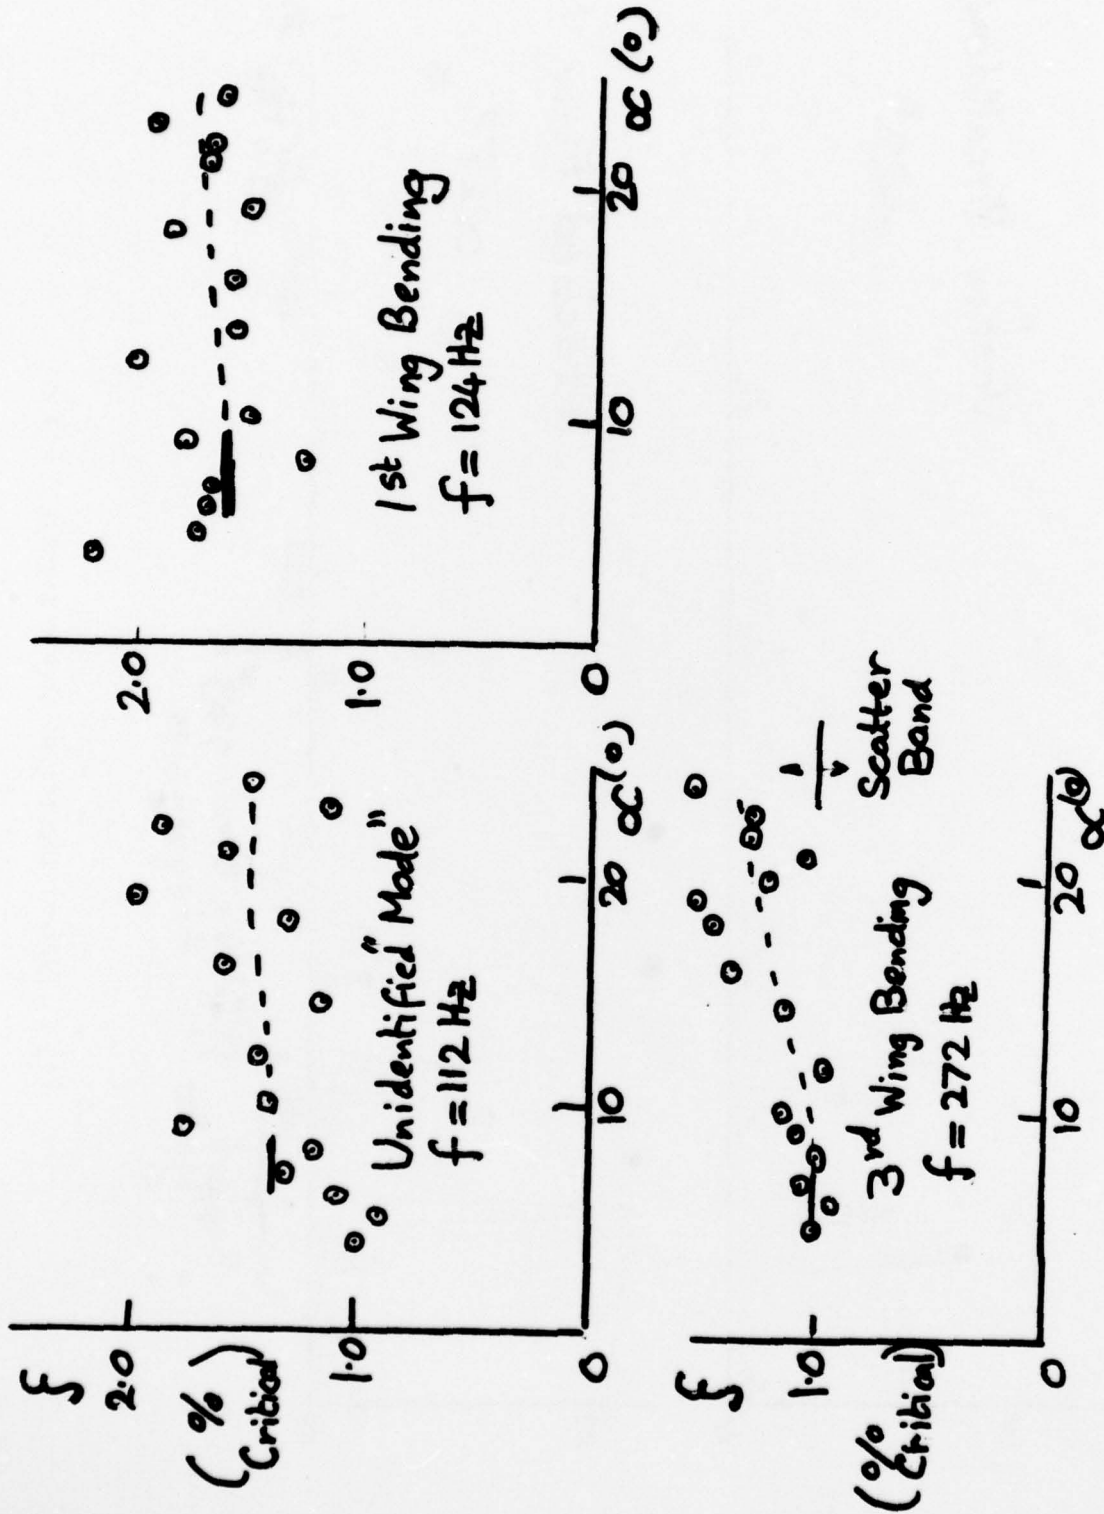 f
2.0
( %
Critical )
1.0
0
10
20
α (°)
Unidentified "Mode"
f = 112 Hz
2.0
1.0
0
10
20
α (°)
1st Wing Bending
f = 124 Hz
f
1.0
(%
Critical)
0
10
20
α (°)
3rd Wing Bending
f = 272 Hz
Scatter
Band